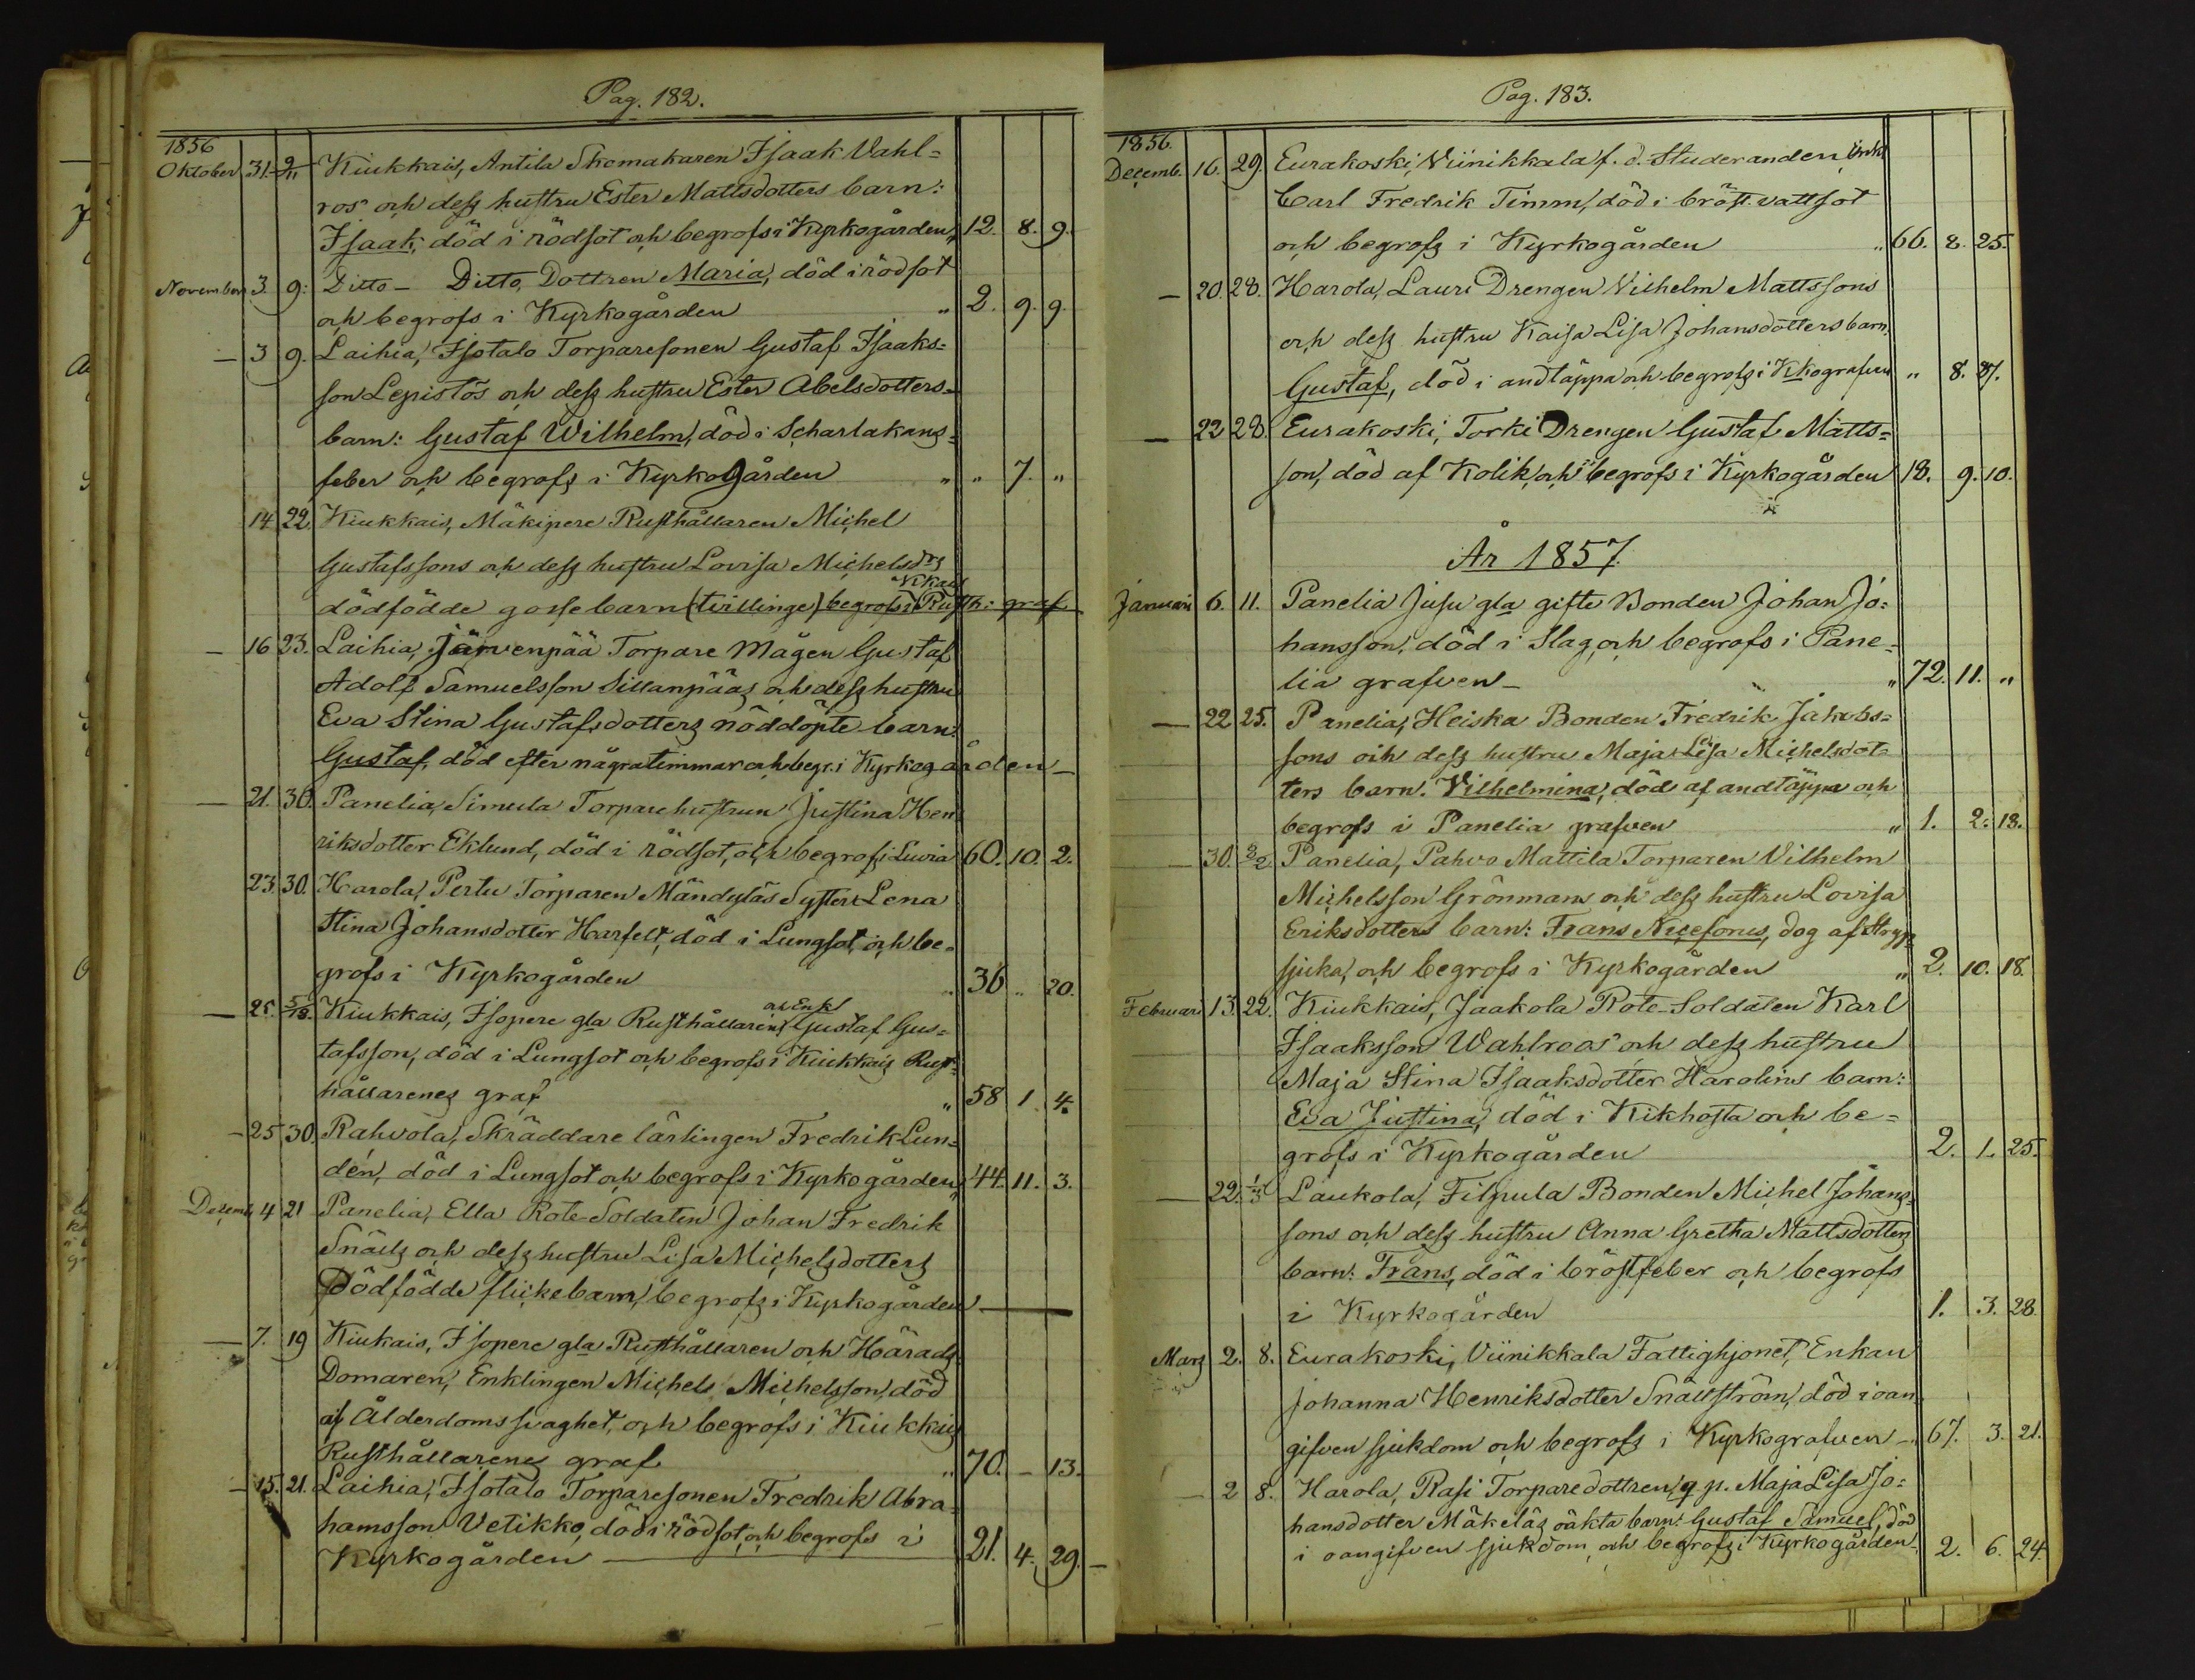 Pag. 182.
1856
Oktober 31. 9/11 Kiukkais, Antila Skomakaren Isaak Vahl=
ros och dess hustru Ester Mattsdotters barn:
Isaak, död i rödsot och begrofs i Kyrkogården, 12. 8. 9.
November 3. 9. Ditto - Ditto, Dottren Maria, död i rödsot
och begrofs i Kyrkogården " 2. 9. 9.
— 3 9. Laihia, Isotalo Torparesonen Gustaf Isaaks=
son Lepistös och dess hustru Ester Abelsdotters
barn: Gustaf Wilhelm, död i Scharlakans=
feber och begrofs i Kyrkogården " " 7. "
14 22. Kiukkais, Mäkipere Rusthållaren Michel
Gustafssons och dess hustru Lovisa Michelsdrs
Kkais
dödfödde gossebarn (tvillinge) begrofs i Rusth: graf
— 16 23. Laihia, Järvenpää Torpare Mågen Gustaf
Adolf Samuelsson Sillanpääs och dess hustru
Eva Stina Gustafsdotters nöddöpte barn:
Gustaf, död efter några timmar och begr. i Kyrkogården —
— 21. 30. Panelia, Simula Torparehustrun Justina Hen
riksdotter Eklund, död i rödsot, och begrofs i Luvia 60. 10. 2.
23. 30. Harola, Pertu Torparen Mändyläs Syster Lena
Stina Johansdotter Harfelt, död i Lungsot, och be=
grofs i Kyrkogården " 36 " 20.
— 25. 5/13. Kiukkais, Isopere gla Rusthållaren, Enkl Gustaf Gus=
tafsson, död i Lungsot och begrofs i Kiukkais Rust=
hållarenes graf " 58 1. 4.
— 25 30. Rahvola, Skräddare lärlingen Fredrik Lun=
dén, död i Lungsot och begrofs i Kyrkogården, 44. 11. 3.
Decemb. 4 21 Panelia, Ella Rote-Soldaten Johan Fredrik
Snäils och dess hustru Lisa Michelsdotters
Dödfödde flickebarn, begrofs i Kyrkogården —
— 7. 19 Kiukais, Isopere gla Rusthållaren och Härads
Domaren, Enklingen Michels Michelsson, död
af Ålderdoms svaghet, och begrofs i Kiukkais
Rusthållarenes graf " 70. - 13.
— 15. 21. Laihia, Isotalo Torparesonen Fredrik Abra=
hamsson Vetikko, död i rödsot, och begrofs i
Kyrkogården — 21. 4. 29. —
Pag. 183.
1856.
Decemb. 16. 29. Eurakoski, Viinikkala f. d. Studeranden, Enkl
Carl Fredrik Timm, död i bröst vattsot
och begrofs i Kyrkogården " 66. 8. 25.
— 20. 28. Harola, Lauri Drengen Vilhelm Mattssons
och dess hustru Kaisa Lisa Johansdotters barn:
Gustaf, död i andtäppa och begrofs i Kkografven " 8. 27.
— 22 28. Eurakoski, Torki Drengen Gustaf Matts=
son, död af Kolik, och begrofs i Kyrkogården 18. 9. 10.
År 1857.
Januari 6. 11. Panelia Jusu gla gifte Bonden Johan Jo=
hansson, död i Slag, och begrofs i Pane=
lia grafven — " 72. 11. "
— 22 25. Panelia, Heiska Bonden Fredrik Jakobs=
sons och dess hustru Maja Lisa Michelsdot=
ters barn. Vilhelmina, död af andtäppa och
begrofs i Panelia grafven " 1. 2. 18.
— 30. 8/2 Panelia, Pahvo Mattila Torparen Vilhelm
Michelsson Grönmans och dess hustru Lovisa
Eriksdotters barn: Frans Nicefonus, dog af Stryp
sjuka, och begrofs i Kyrkogården " 2. 10. 18.
Februari 13. 22. Kiukkais, Jaakola Rote-Soldaten Karl
Isaaksson Wahlroos och dess hustru
Maja Stina Isaaksdotter Harolins barn:
Eva Justina, död i Kikhosta och be=
grofs i Kyrkogården 2. 1. 25.
— 22. 1/3 Laukola, Filpula Bonden Michel Johans
sons och dess hustru Anna Gretha Mattsdotters
barn: Frans, död i bröstfeber och begrofs
i Kyrkogården 1. 3. 28.
Mars 2. 8. Eurakoski, Viinikkala Fattighjonet, Enkan
Johanna Henriksdotter Snällström, död i oan
gifven sjukdom och begrofs i Kyrkografven — 67. 3. 21.
— 2 8. Harola, Rasi Torparedottren, q p. Maja Lisa Jo=
hansdotter Mäkeläs oäkta barn: Gustaf Samuel, död
i oangifven sjukdom, och begrofs i Kyrkogården. 2. 6. 24.